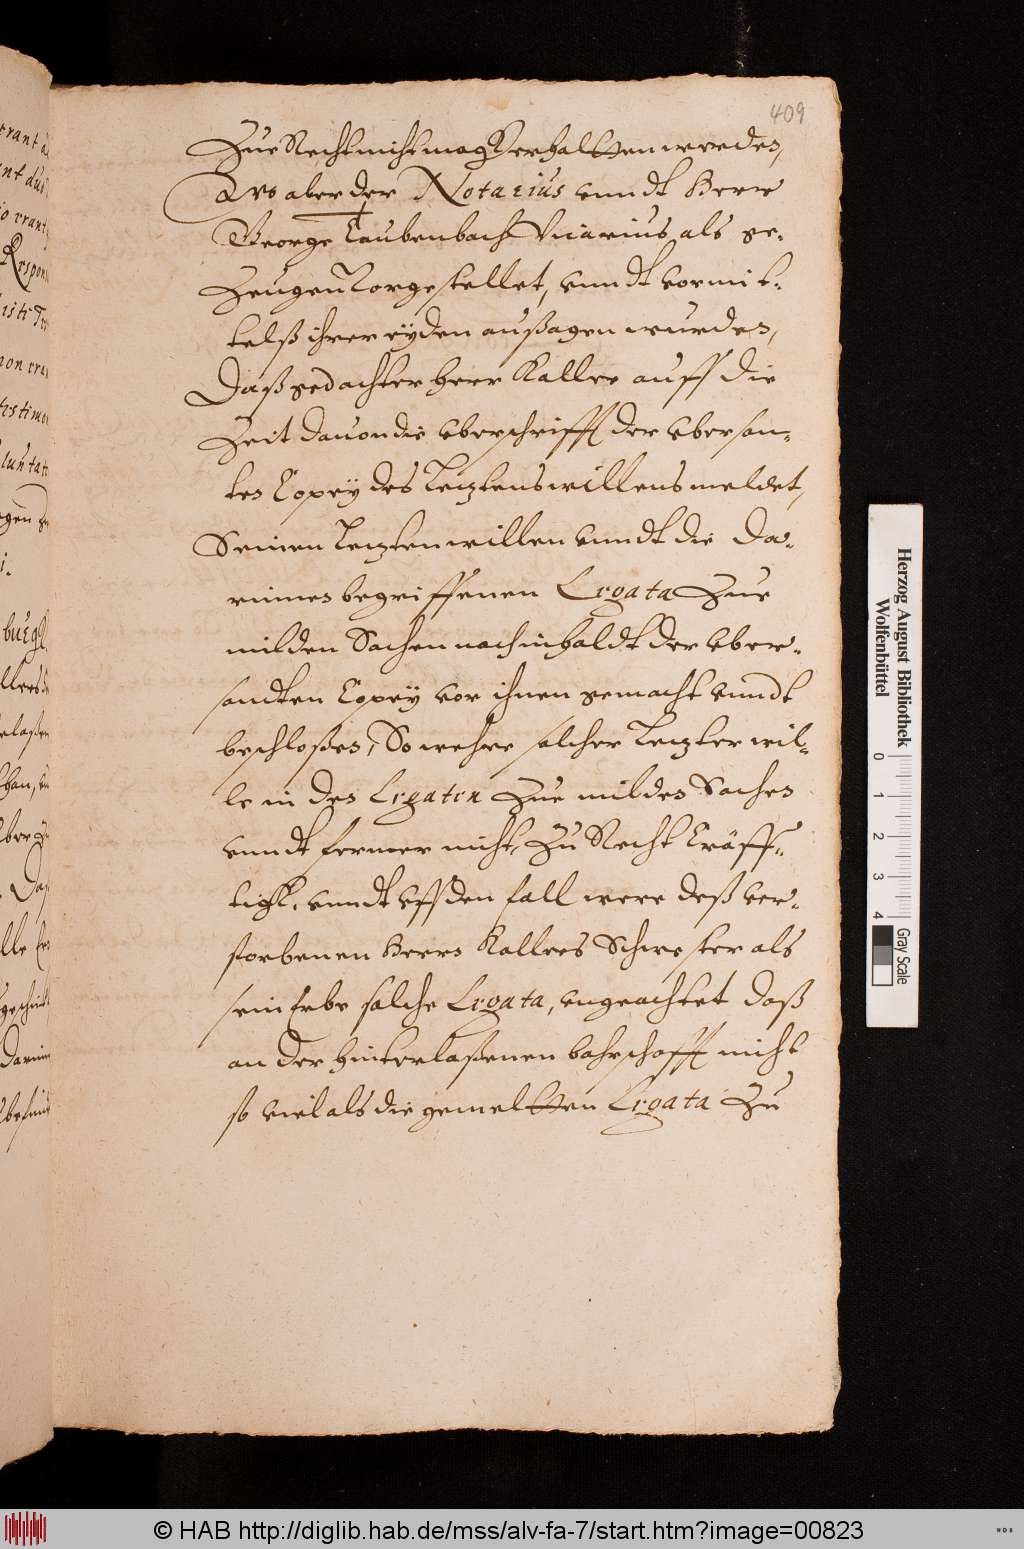 409
Zue Recht nicht mag Verhaltten werden,
Wo aber der Notarius vnndt Herr
George Taubenbach Vicarius als ge-
Zeugen Vorgestellet, vnndt vormit-
telß ihrer eyden außsagen wurden,
Daß gedachter Herr Kallee auff die
Zeit dauon die vberschrifft der vbersan-
ten Copey des Letztenswillens meldet,
Seinen Letzten willen vnndt die da-
rinnen begriffenen Legata Zue
milden Sachen nach inhaldt der vber-
sandten Copey vor ihnen gemacht vnndt
beschloßen, So wehre solcher Letzter wil-
le in den Legaten Zue milden Sachen
vnndt ferner nicht, Zu Recht Kräff-
tigk, vnndt vff den fall were deß ver-
storbenen Herrn Kallees Schwester als
sein Erbe solche Legata, vngeachtet daß
an der hinterlaßenen bahrschafft nicht
so viel als die gemeltten Legata Zu
Herzog August Bibliothek
Wolfenbüttel
0 1 2 3 4
Gray Scale
© HAB http://diglib.hab.de/mss/alv-fa-7/start.htm?image=00823